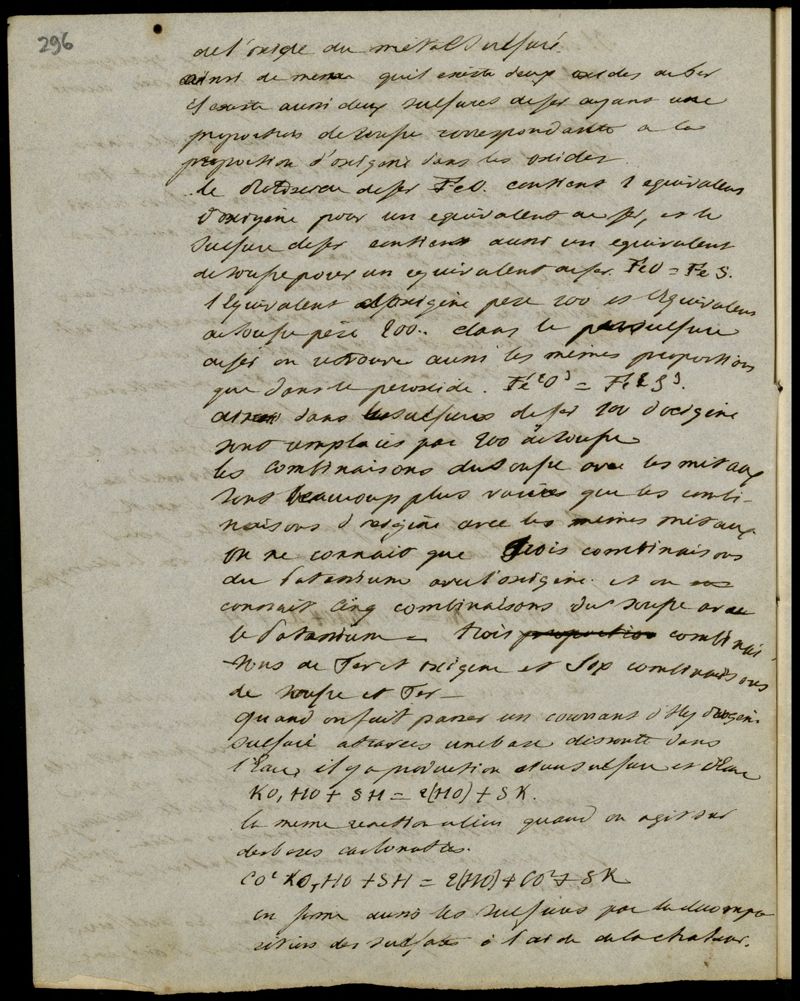 296
de l'oxigene du métal sulfuré
ainsi de meme qu'il existe deux oxides de fer
il existe aussi deux sulfures de fer ayant une
proportion de soufre correspondante a la
proportion d'oxigene dans les oxides.
le de fer FeO. contient 1 equivalent
d'oxigene pour un equivalent de fer, et le
sulfure de fer contient aussi un equivalent
de soufre pour un equivalent de fer. FeO = FeS.
l'équivalent d'oxigène pèse 100 et l'équivalent
de soufre pèse 200.. dans le persulfure
de fer on retrouve aussi les mêmes proportions
que dans le peroxide. Fe²O³ = Fe²S³
ainsi dans les sulfures de fer 100 d'oxigène
sont remplacés par 200 de soufre
les combinaisons du soufre avec les metaux
sont beaucoup plus variées que les combi-
naisons d'oxigène avec les mêmes metaux
on ne connait que trois combinaisons
du Potassium avec l'oxigène. et on
connait Cinq combinaisons du soufre avec
le Potassium = trois proportion combinai
sons de Fer et oxigene et Six combinaisons
de soufre et Fer —
quand on fait passer un courant d'Hydrogene
sulfuré a travers une base dissoute dans
l'Eau, il y a production d'un sulfure et d'Eau
KO, HO + SH = 2(HO) + SK.
la meme reaction a lieu quand on agit sur
des bases carbonatées.
CO² KO, HO + SH = 2(HO) + CO² + SK
on forme aussi les sulfures par la decompo
sition des sulfates à l'aide de la chaleur.